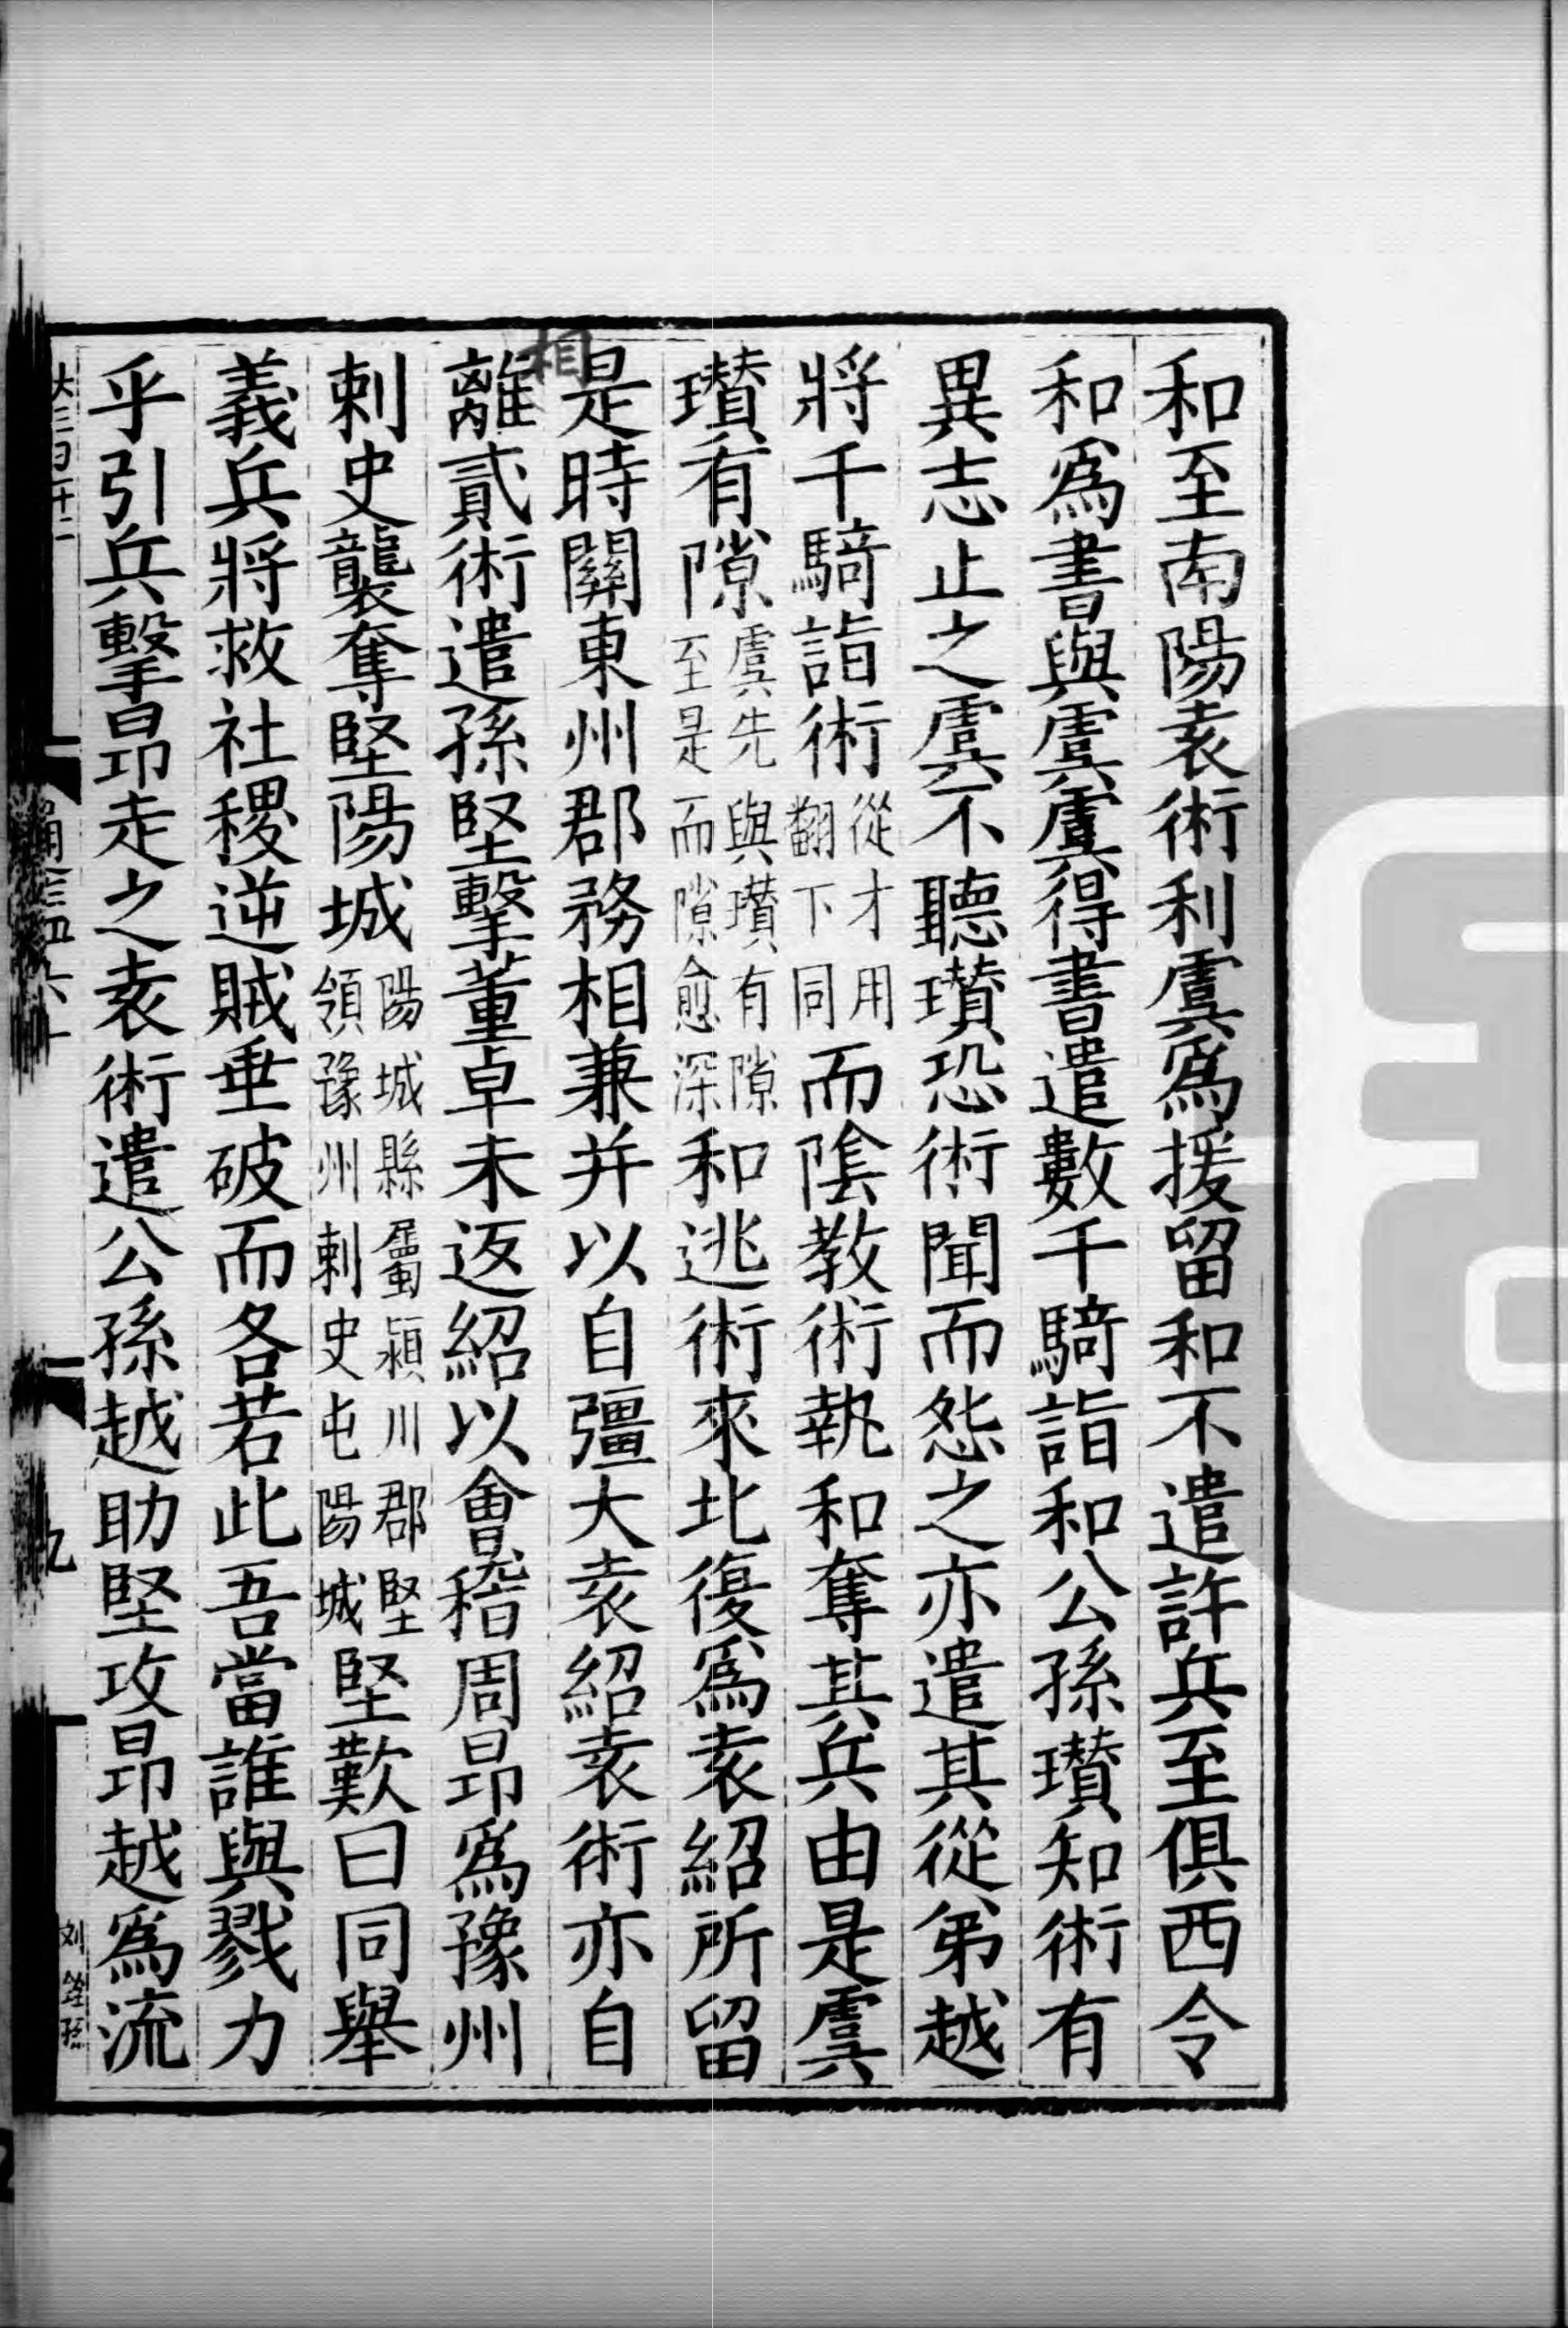 和至南陽袁術利虞爲援留和不遣許兵至俱西令
和爲書與虞虞得書遣數千騎詣和公孫瓚知術有
異志止之虞不聽瓚恐術聞而怨之亦遣其從弟越
將千騎詣術從才用翻下同而陰教術執和奪其兵由是虞
瓚有隙虞先與瓚有隙至是而隙愈深和逃術來北復爲袁紹所留
是時關東州郡務相兼并以自彊大袁紹袁術亦自
相
離貳術遣孫堅擊董卓未返紹以會稽周昂爲豫州
刺史襲奪堅陽城陽城縣屬潁川郡堅領豫州刺史屯陽城堅歎曰同舉
義兵將救社稷逆賊垂破而各若此吾當誰與戮力
乎引兵擊昂走之袁術遣公孫越助堅攻昂越爲流